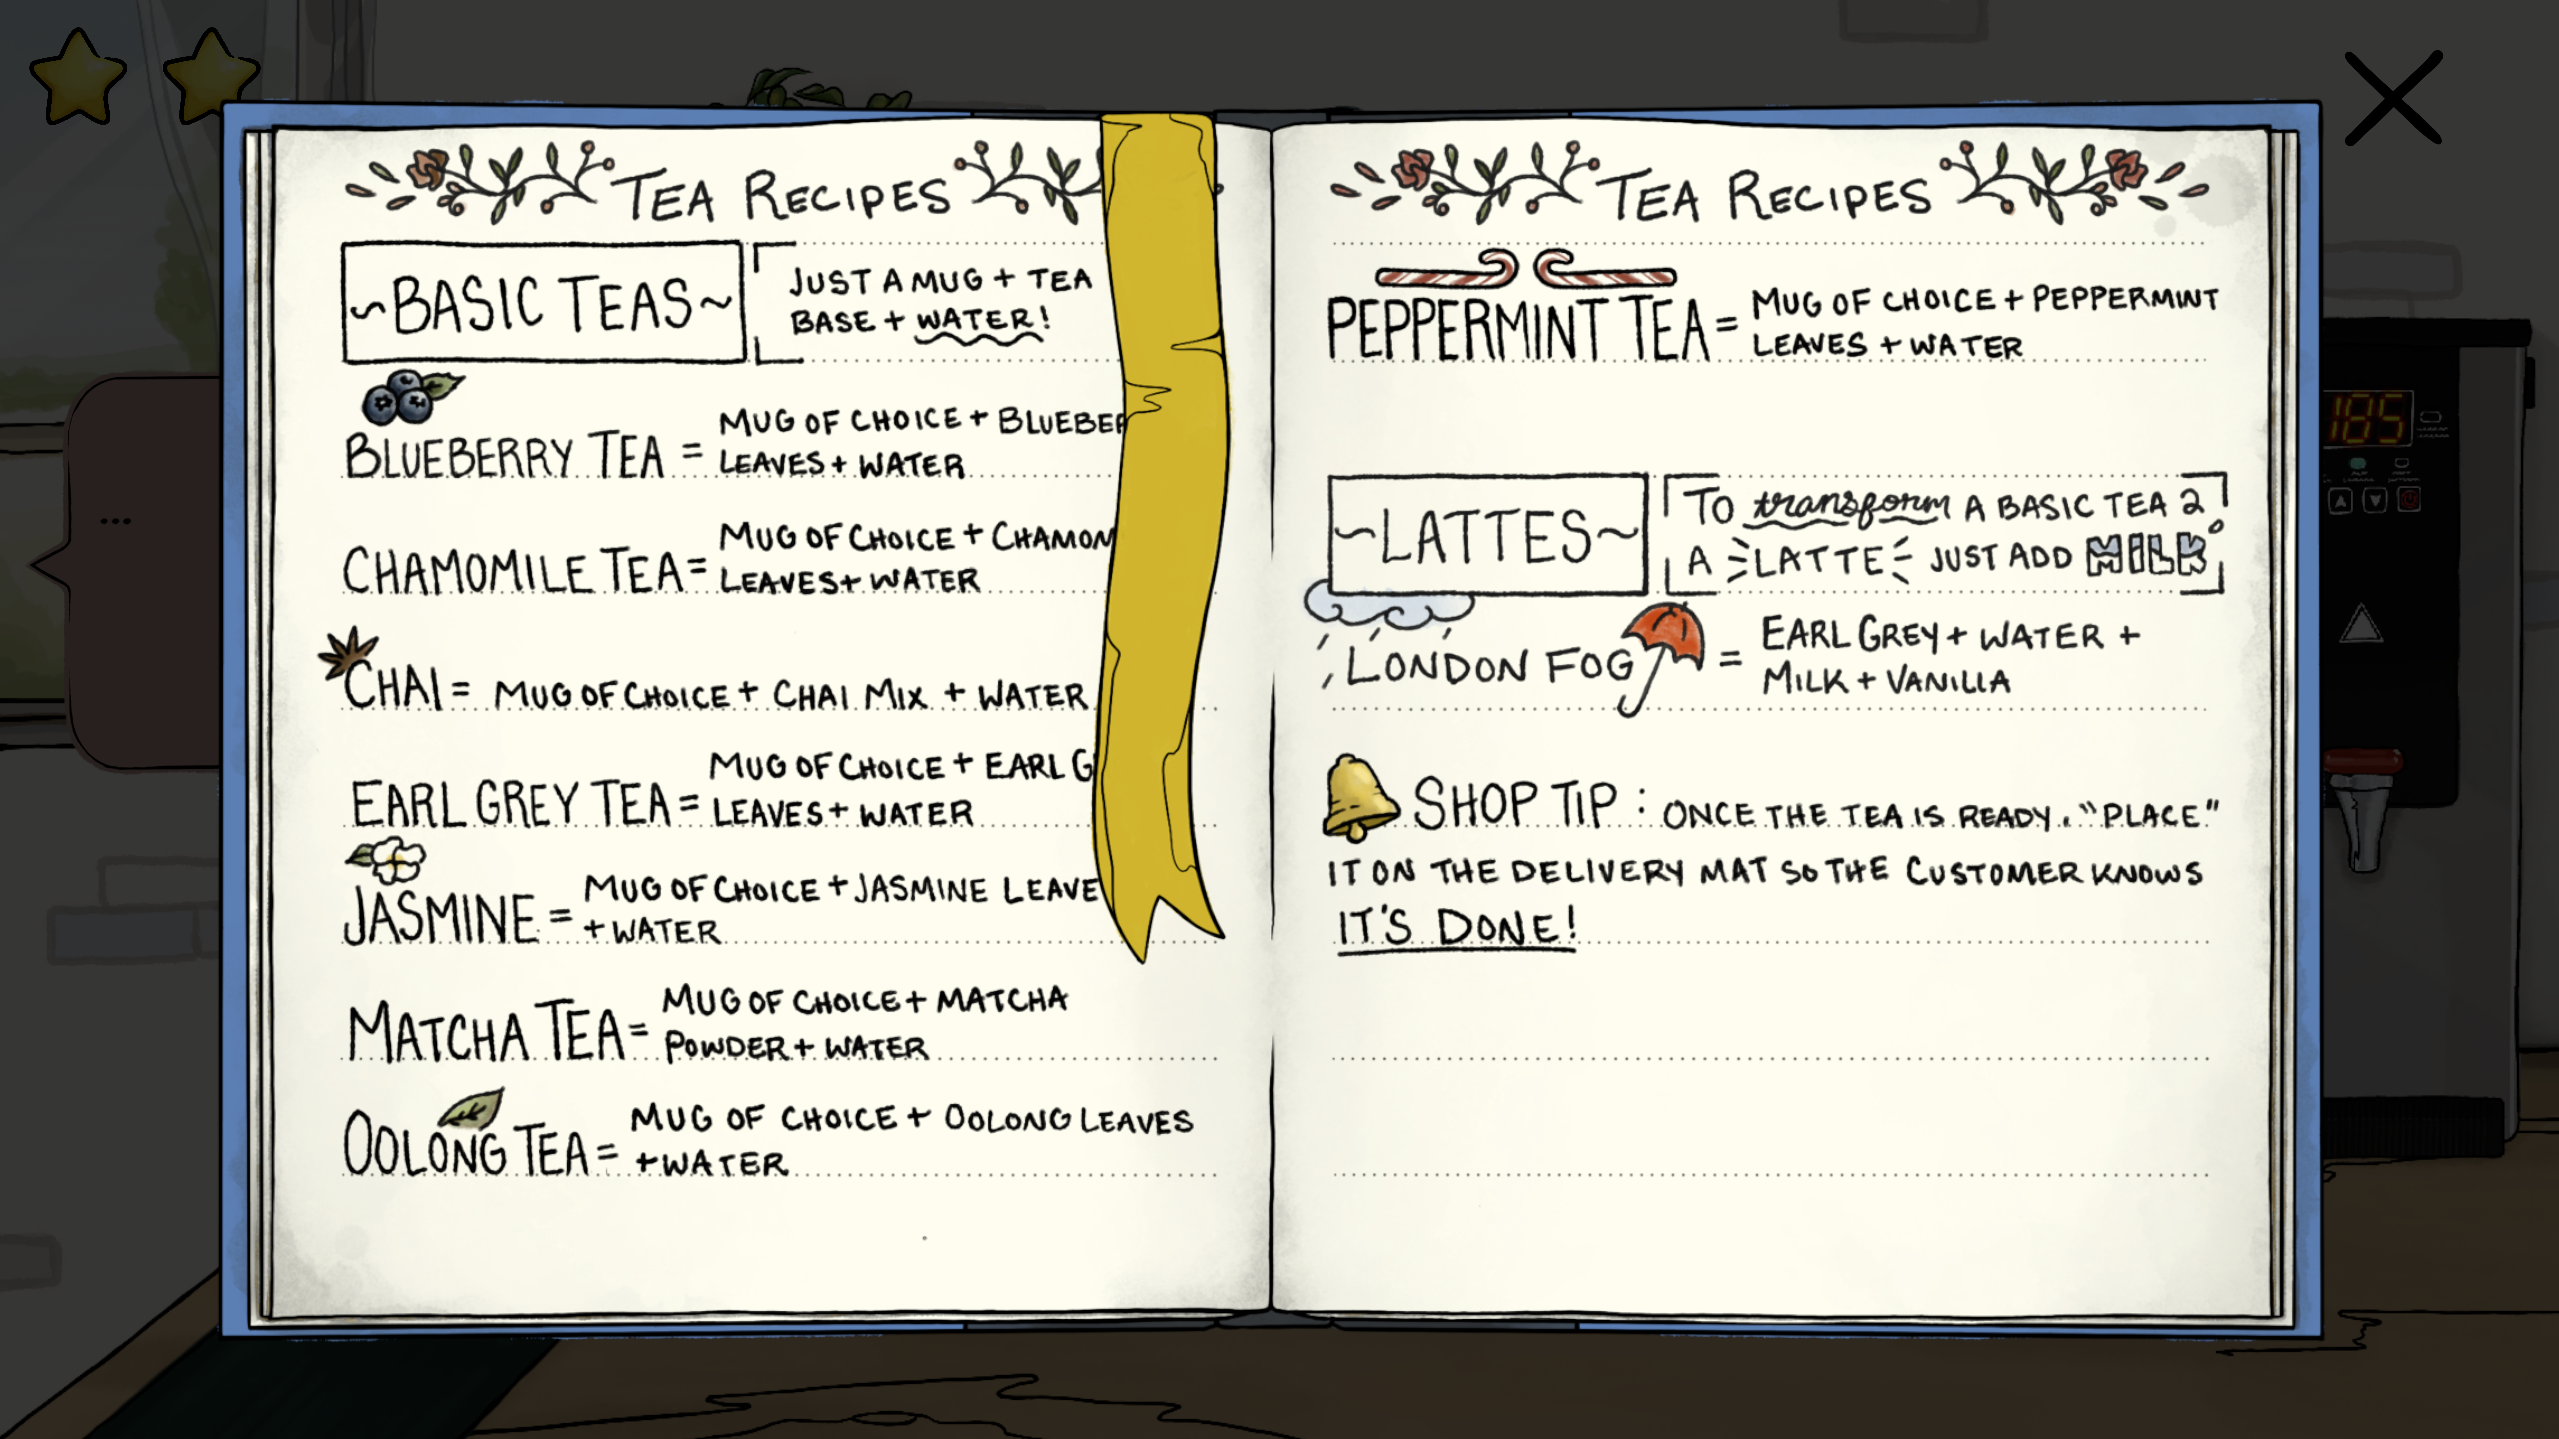 TEA RECIPES
~BASIC TEAS~
JUST A MUG + TEA
BASE + WATER!
BLUEBERRY TEA =
MUG OF CHOICE +
LEAVES + WATER
CHAMOMILE TEA =
MUG OF CHOICE +
LEAVES + WATER
CHAI = MUG OF CHOICE + CHAI MIX + WATER
EARL GREY TEA =
MUG OF CHOICE + EARL
LEAVES + WATER
JASMINE =
MUG OF CHOICE + JASMINE
+ WATER
MATCHA TEA =
MUG OF CHOICE + MATCHA
POWDER + WATER
OOLONG TEA =
MUG OF CHOICE + OOLONG LEAVES
+ WATER
TEA RECIPES
PEPPERMINT TEA =
MUG OF CHOICE + PEPPERMINT
LEAVES + WATER
~LATTES~
TO transform A BASIC TEA 2
A LATTE JUST ADD MILK
LONDON FOG =
EARL GREY + WATER +
MILK + VANILLA
SHOP TIP : ONCE THE TEA IS READY, "PLACE"
IT ON THE DELIVERY MAT SO THE CUSTOMER KNOWS
IT'S DONE!
185
...